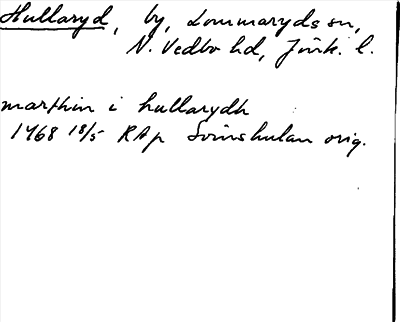 Hullaryd, by, Lommaryds sn,
N. Vedbo hd, Jönk. l.
marthin i hullarydh
1468 18/5 RAp Svinshulan orig.